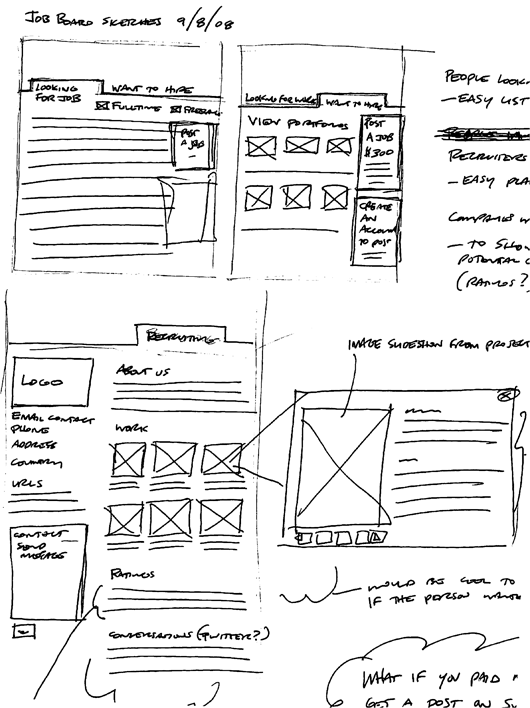 JOB BOARD SKETCHES 9/8/08
LOOKING
FOR JOB
WANT TO HIRE
FULLTIME
FREELANCE
POST
A JOB
LOOKING FOR WORK
WANT TO HIRE
VIEW PORTFOLIOS
POST
A JOB
$300
CREATE
AN
ACCOUNT
TO POST
PEOPLE
— EASY LIST
RECRUITERS
— EASY
— TO
(RATINGS?)
RECRUITING
LOGO
EMAIL CONTACT
PHONE
ADDRESS
COUNTRY
URLS
CONTACT
SEND
MESSAGE
ABOUT US
WORK
RATINGS
CONVERSATIONS (TWITTER?)
IMAGE SLIDESHOW FROM PROJECT
X
— WOULD BE COOL TO
IF THE PERSON
WHAT IF YOU PAID
GET A POST ON